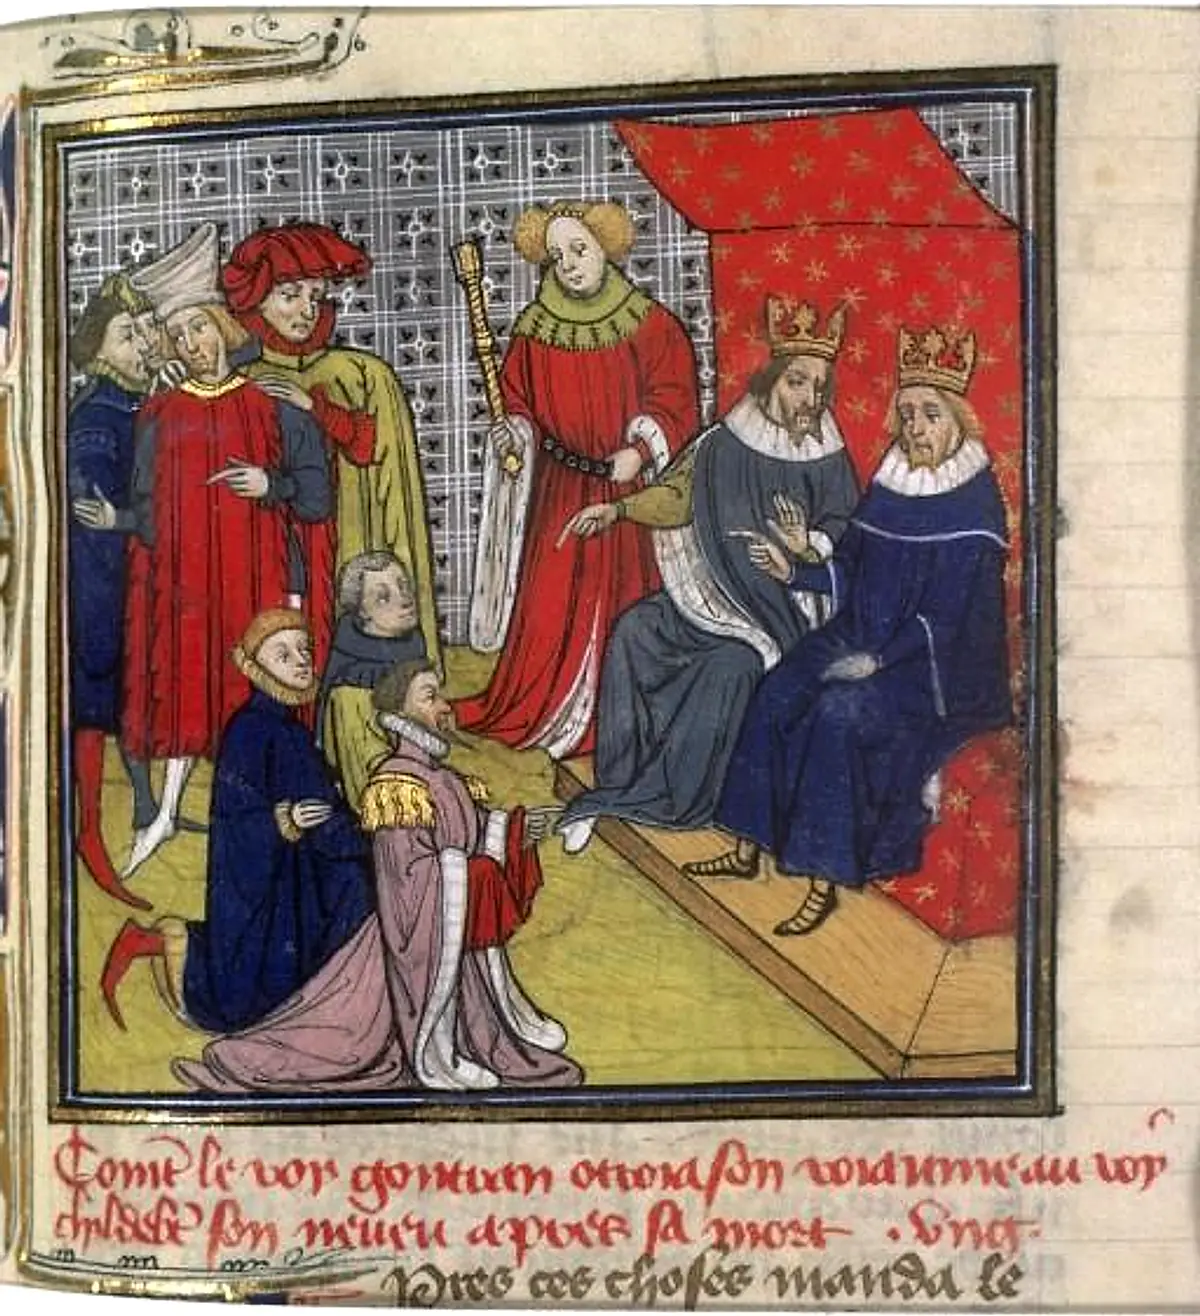 Come le roy gontran ottroia son roiaume au roy
childebert son neueu apres sa mort . Vng .
Pres ces choses manda le